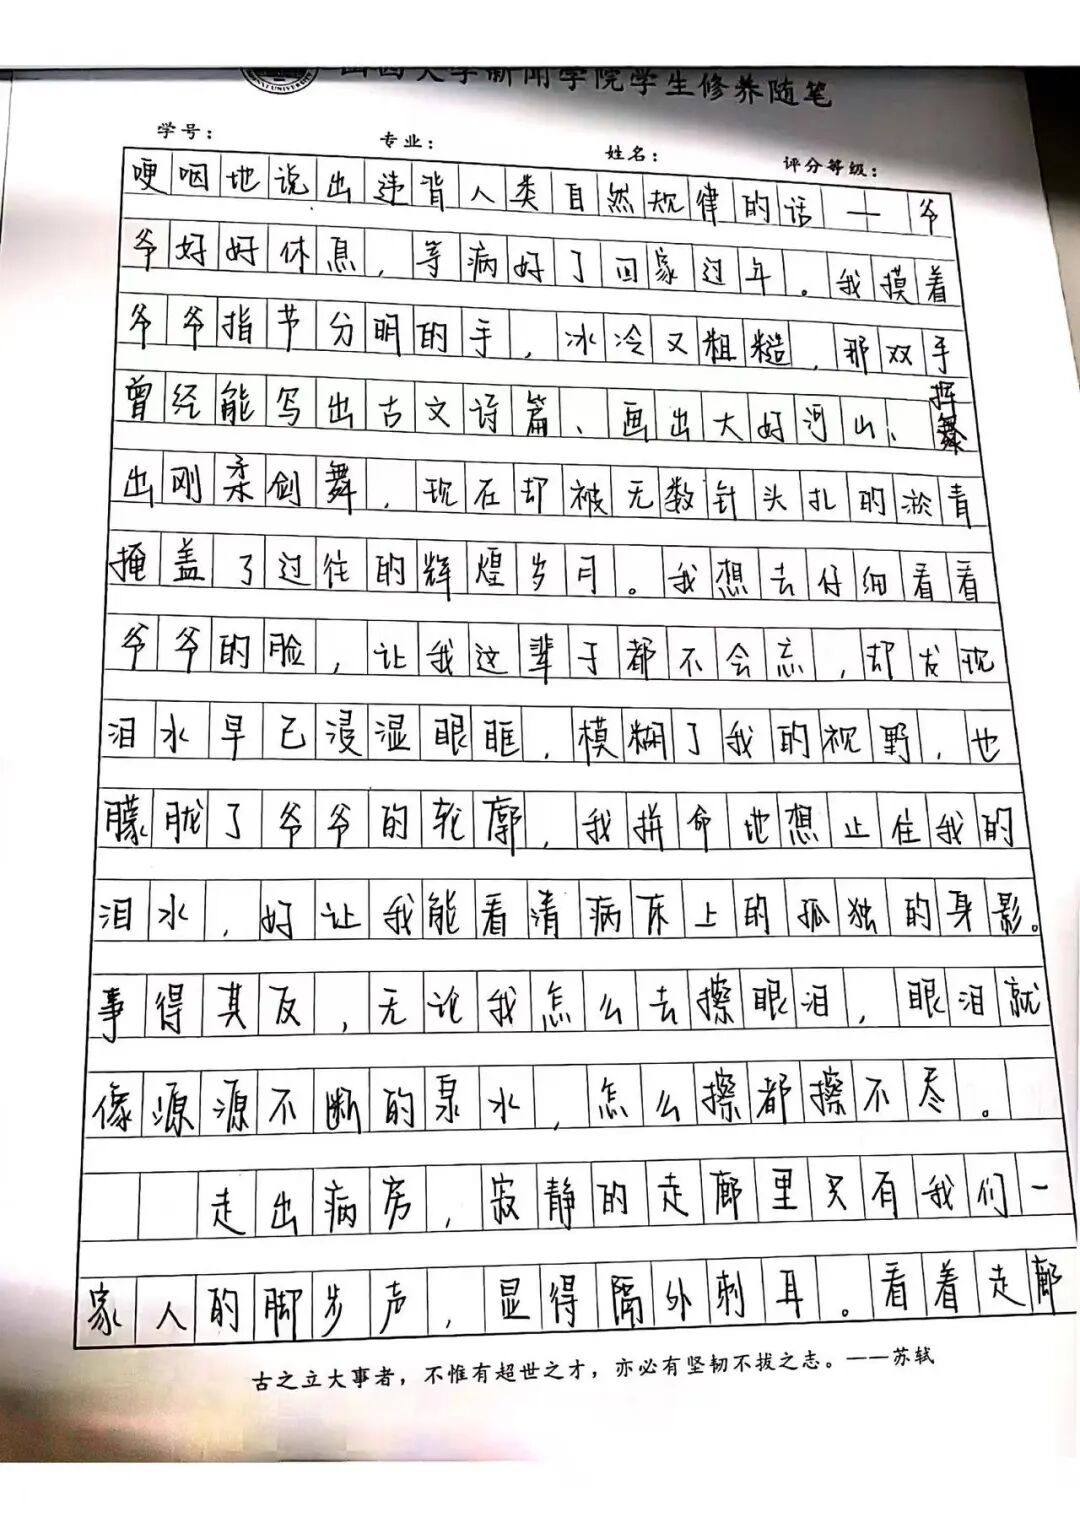 山西大学新闻学院学生修养随笔
学号： 专业： 姓名： 评分等级：
哽咽地说出违背人类自然规律的话——爷
爷好好休息，等病好了回家过年。我摸着
爷爷指节分明的手，冰冷又粗糙，那双手
曾经能写出古文诗篇、画出大好河山、挥舞
出刚柔剑舞，现在却被无数针头扎的淤青
掩盖了过往的辉煌岁月。我想去仔细看看
爷爷的脸，让我这辈子都不会忘，却发现
泪水早已浸湿眼眶，模糊了我的视野，也
朦胧了爷爷的轮廓，我拼命地想止住我的
泪水，好让我能看清病床上的孤独的身影。
事得其反，无论我怎么去擦眼泪，眼泪就
像源源不断的泉水，怎么擦都擦不尽。
走出病房，寂静的走廊里只有我们一
家人的脚步声，显得隔外刺耳。看着走廊
古之立大事者，不惟有超世之才，亦必有坚韧不拔之志。——苏轼